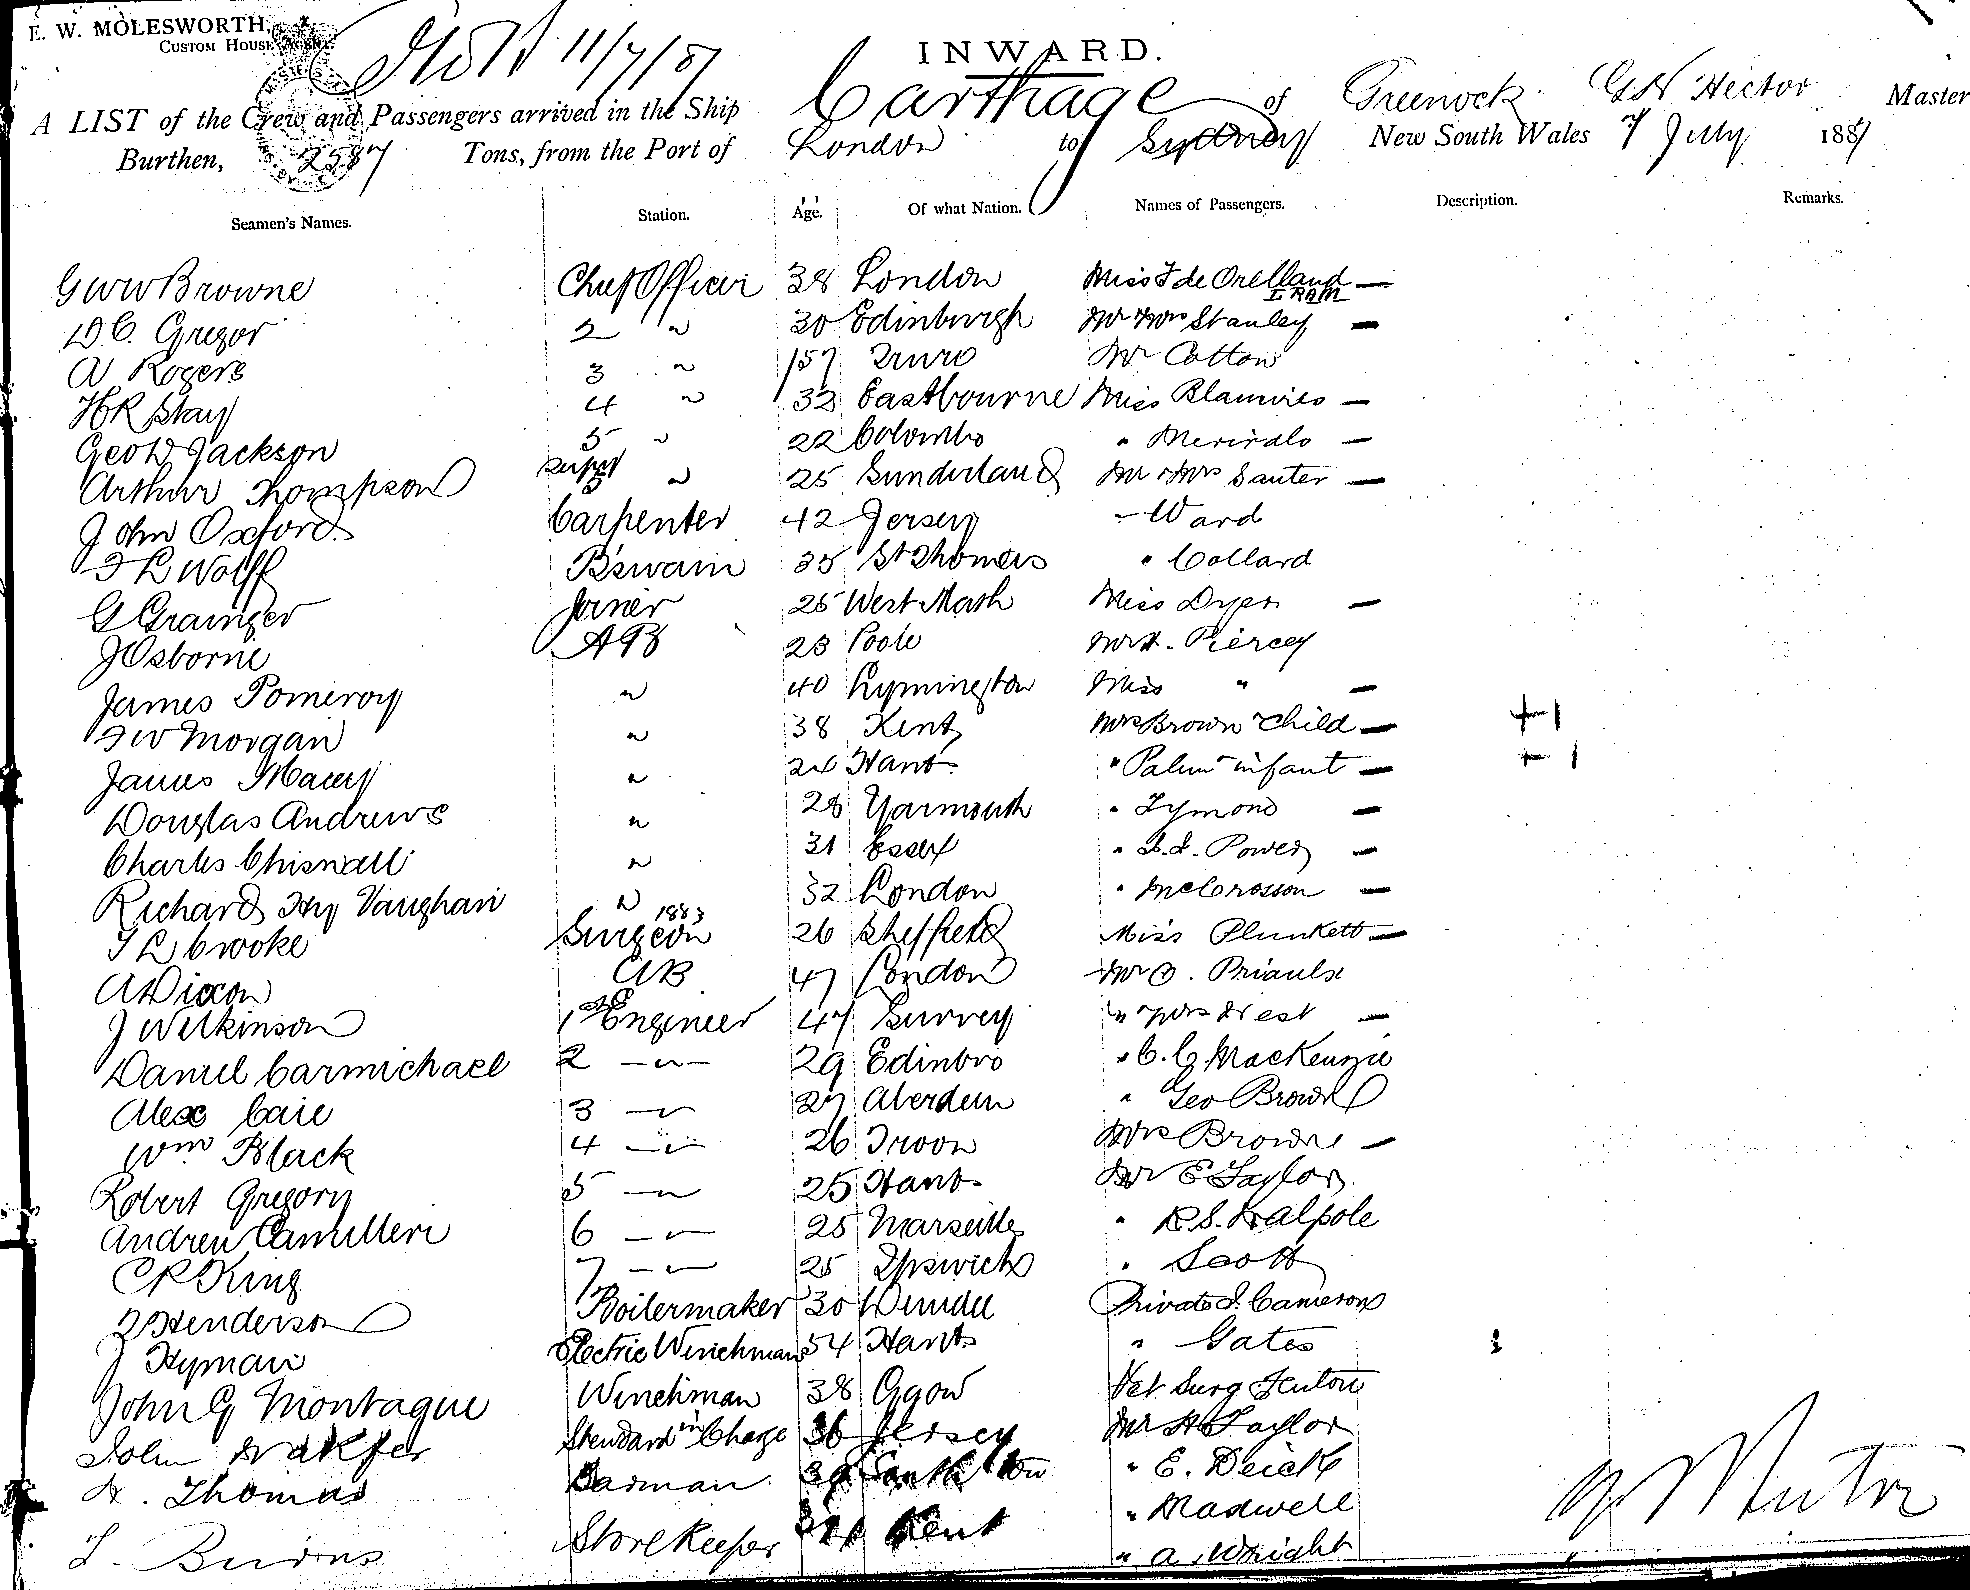 E. W. MOLESWORTH,
CUSTOM HOUSE AGENT.
11/7/87
INWARD.
A LIST of the Crew and Passengers arrived in the Ship Carthage of Greenock G N Hector Master
Burthen, 2587 Tons, from the Port of London to Sydney New South Wales 7 July 1887
Seamen's Names. Station. Age. Of what Nation. Names of Passengers. Description. Remarks.
G W W Browne Chief Officer 38 London Miss F de Orelland —
D. C. Gregor 2 " 30 Edinburgh Mr Mrs Stanley —
A Rogers 3 " Truro Mr Cotton
H R Stay 4 " 32 Eastbourne Miss —
Geo W Jackson 5 " 22 Colombo " —
Arthur Thompson " 25 Sunderland Mr & Mrs Santer —
John Oxford Carpenter 42 Jersey " Ward
F L Wolff B'swain 35 St Thomas " Collard
G Grainger Joiner 25 West Mash Miss Dyer —
J Osborne AB 23 Poole Piercey
James Pomeroy " 40 Lymington Miss " —
F W Morgan " 38 Kent Mrs Brown & Child — + 1
James Macey " 24 Hants " infant — + 1
Douglas Andrews " 28 Yarmouth " —
Charles Chisnall " 31 Essex " Power —
Richard Hy Vaughan " 32 London " McCrosson —
T L Crooke Surgeon 1883 26 Sheffield Miss Plunkett —
A Dixon AB 47 London Mr O. Priaulx
J Wilkinson 1st Engineer 47 Surrey " & Mrs West —
Daniel Carmichael 2 —"— 29 Edinbro " C. G. MacKenzie
Alex Caie 3 —"— 27 Aberdeen " Geo Brown
Wm Black 4 —"— 26 Troon Mrs Browne —
Robert Gregory 5 —"— 25 Hants Mr E Taylor
Andrew Camilleri 6 —"— 25 Marseilles " R. S. Walpole
C R King 7 —"— 25 Ipswich " Scott
Henderson Boilermaker 30 Dundee Private J. Cameron
J Hyman Electric Winchman 54 Hants " Gates
John G Montague Winchman 38 Ggow Vet Surg Fenton
John Steward in Charge 36 Jersey Mr H Taylor
H. Thomas Barman " E. Deick
Storekeeper Kent " Maxwell
" A. Wright